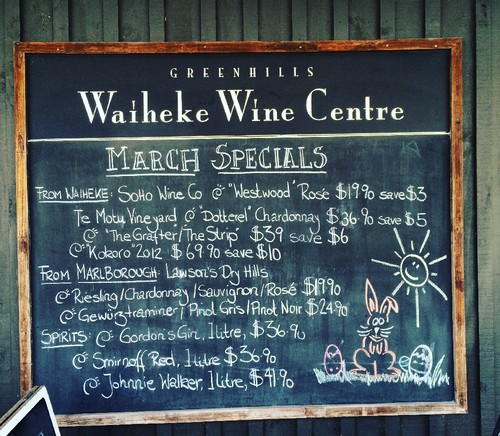 GREENHILLS
Waiheke Wine Centre
MARCH SPECIALS
FROM WAIHEKE: SOHO WINE CO @ "Westwood" Rosé $19.90 save $3
Te Motu Vineyard @ "Dotterel" Chardonnay $36.90 save $5
@ "The Grafter/The Strip" $39 save $6
@ "Kokoro" 2012 $69.90 save $10
FROM MARLBOROUGH: Lawson's Dry Hills
@ Riesling/Chardonnay/Sauvignon/Rosé $19.90
@ Gewürztraminer/Pinot Gris/Pinot Noir $24.90
SPIRITS: @ Gordon's Gin, 1 litre, $36.90
@ Smirnoff Red, 1 litre $36.90
@ Johnnie Walker, 1 litre, $41.90